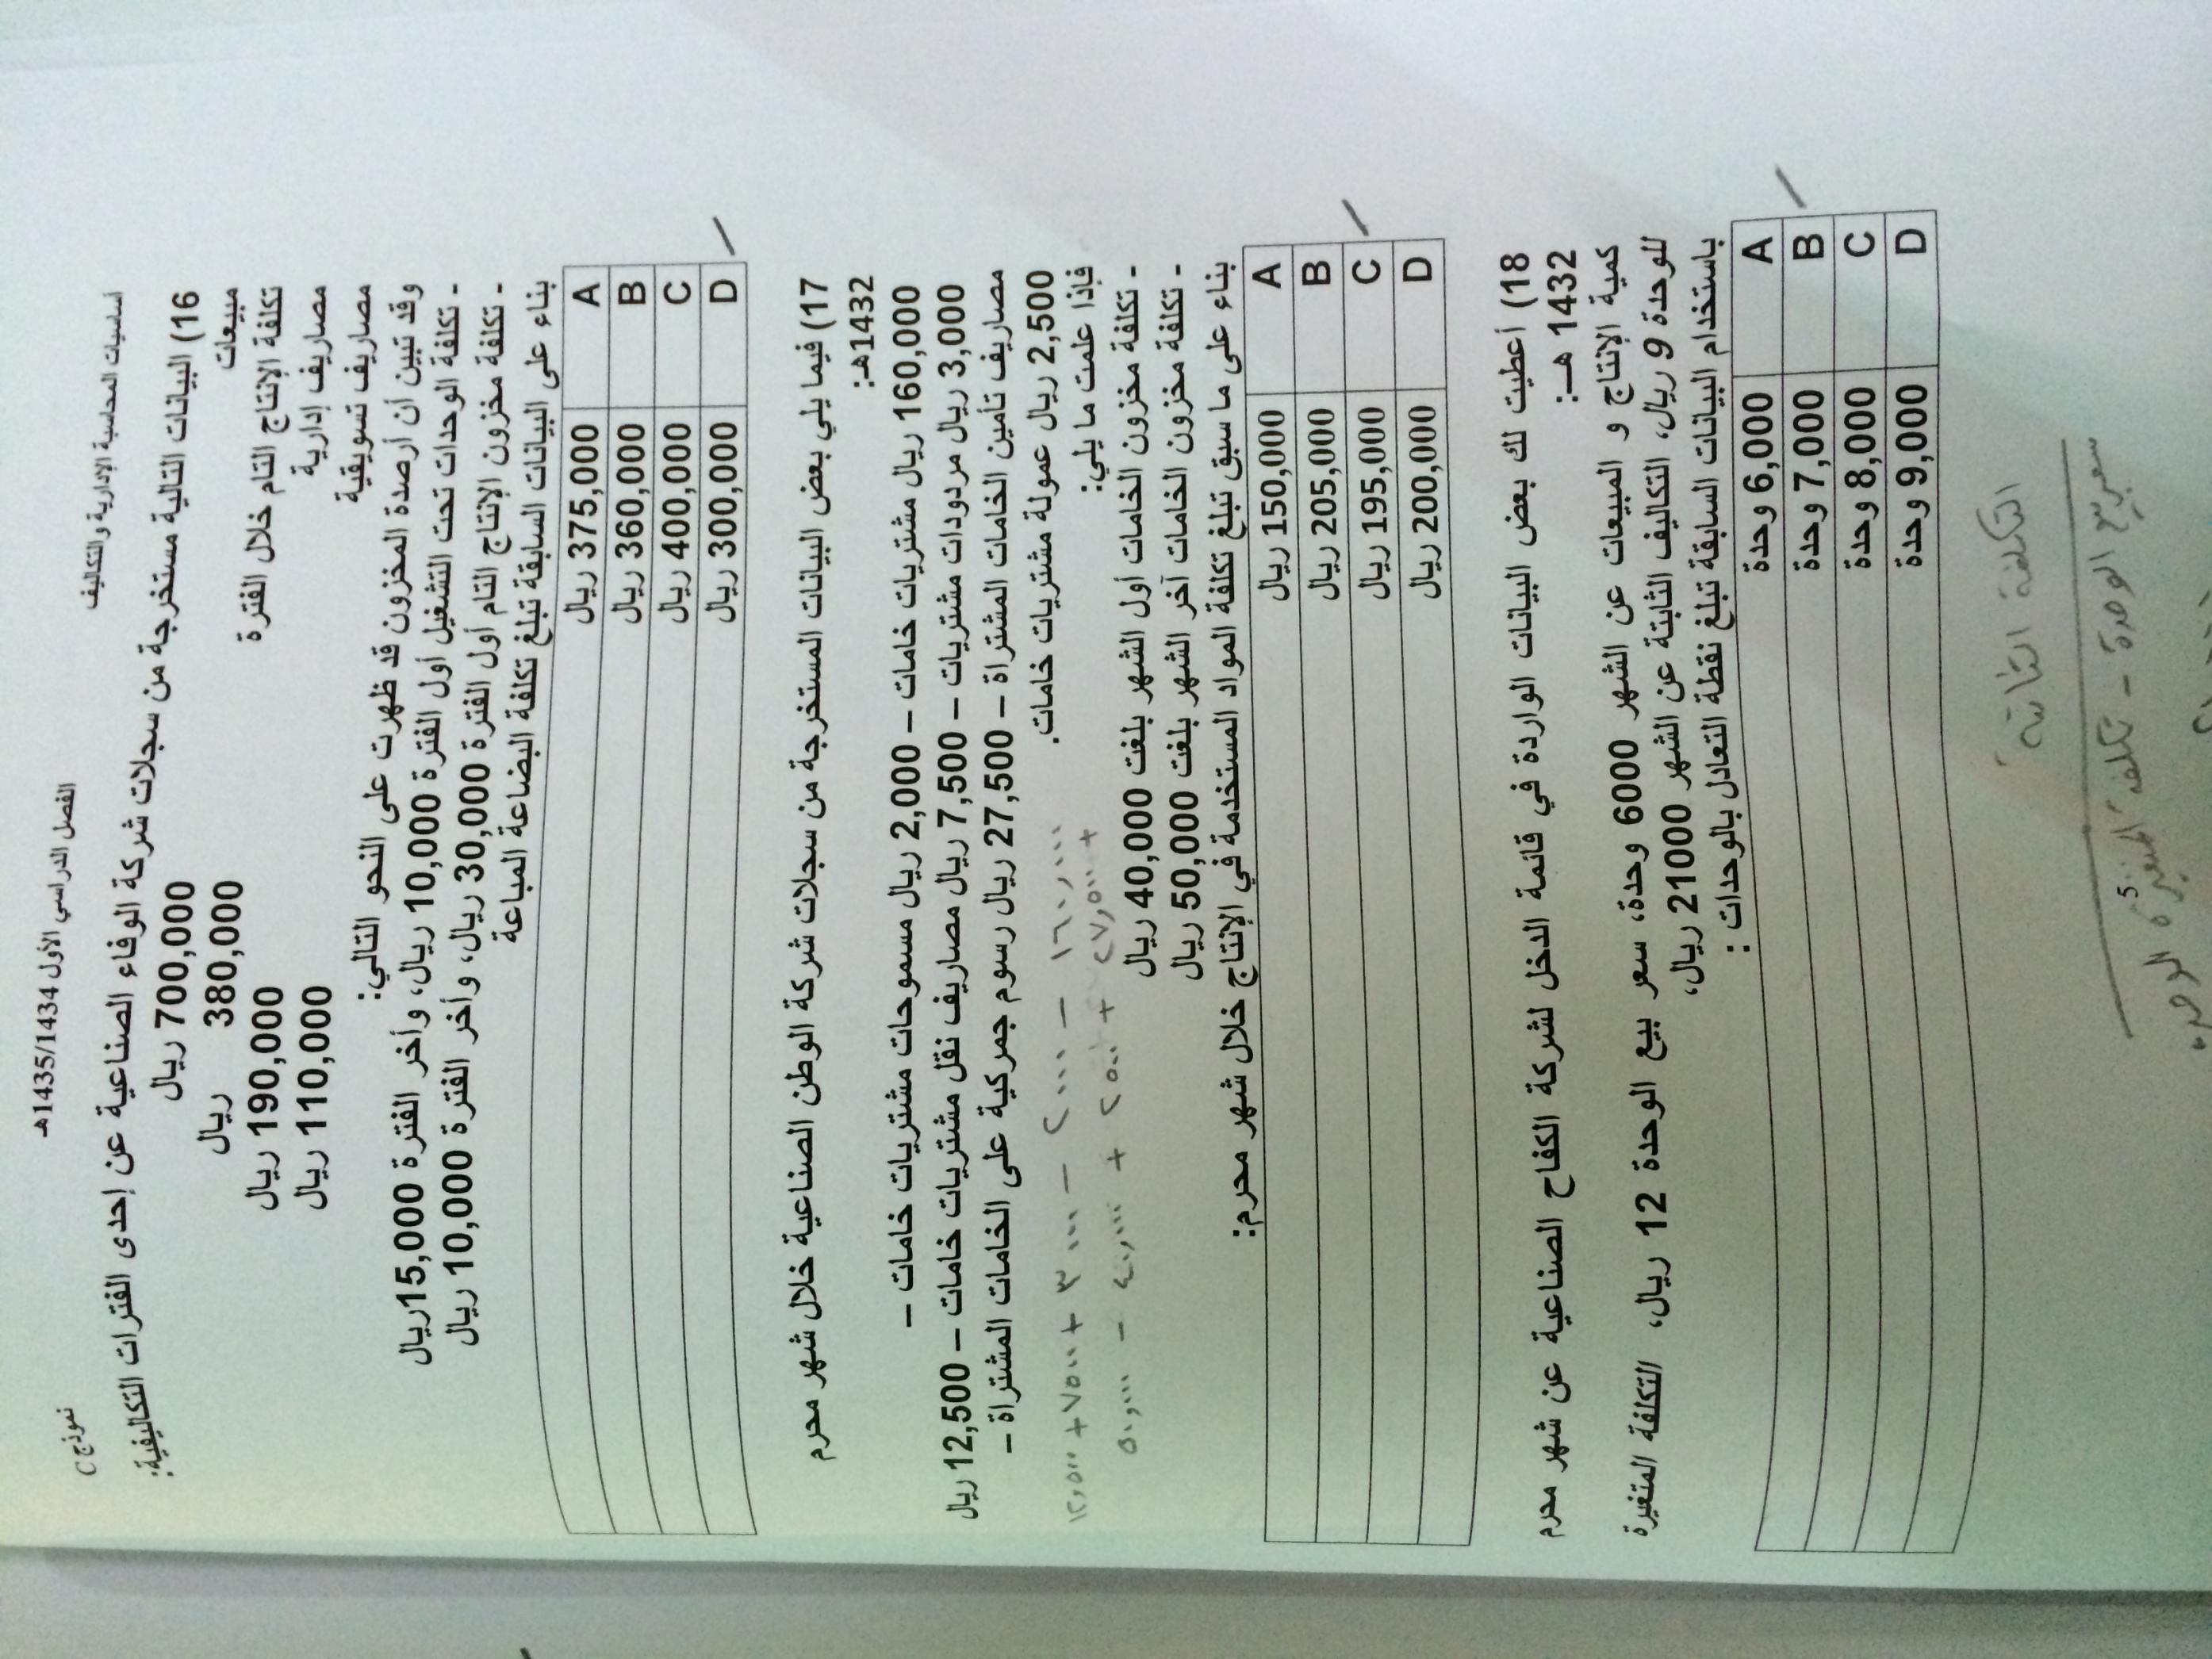 أساسيات المحاسبة الإدارية والتكاليف الفصل الدراسي الأول 1435/1434هـ نموذج C
16) البيانات التالية مستخرجة من سجلات شركة الوفاء الصناعية عن إحدى الفترات التكاليفية:
مبيعات 700,000 ريال
تكلفة الإنتاج التام خلال الفترة 380,000 ريال
مصاريف إدارية 190,000 ريال
مصاريف تسويقية 110,000 ريال
وقد تبين أن أرصدة المخزون قد ظهرت على النحو التالي:
- تكلفة الوحدات تحت التشغيل أول الفترة 10,000 ريال، وأخر الفترة 15,000ريال
- تكلفة مخزون الإنتاج التام أول الفترة 30,000 ريال، وأخر الفترة 10,000 ريال
بناء على البيانات السابقة تبلغ تكلفة البضاعة المباعة
A 375,000 ريال
B 360,000 ريال
C 400,000 ريال
D 300,000 ريال
17) فيما يلي بعض البيانات المستخرجة من سجلات شركة الوطن الصناعية خلال شهر محرم
1432هـ:
160,000 ريال مشتريات خامات – 2,000 ريال مسموحات مشتريات خامات –
3,000 ريال مردودات مشتريات – 7,500 ريال مصاريف نقل مشتريات خامات – 12,500ريال
مصاريف تأمين الخامات المشتراة – 27,500 ريال رسوم جمركية على الخامات المشتراة –
2,500 ريال عمولة مشتريات خامات.
فإذا علمت ما يلي:
- تكلفة مخزون الخامات أول الشهر بلغت 40,000 ريال
- تكلفة مخزون الخامات آخر الشهر بلغت 50,000 ريال
بناء على ما سبق تبلغ تكلفة المواد المستخدمة في الإنتاج خلال شهر محرم:
A 150,000 ريال
B 205,000 ريال
C 195,000 ريال
D 200,000 ريال
18) أعطيت لك بعض البيانات الواردة في قائمة الدخل لشركة الكفاح الصناعية عن شهر محرم
1432 هـ:
كمية الإنتاج و المبيعات عن الشهر 6000 وحدة، سعر بيع الوحدة 12 ريال، التكلفة المتغيرة
للوحدة 9 ريال، التكاليف الثابتة عن الشهر 21000 ريال،
باستخدام البيانات السابقة تبلغ نقطة التعادل بالوحدات :
A 6,000 وحدة
B 7,000 وحدة
C 8,000 وحدة
D 9,000 وحدة
التكلفة الثابتة
سعر بيع الوحدة - تكلفة المتغيرة الوحدة
5